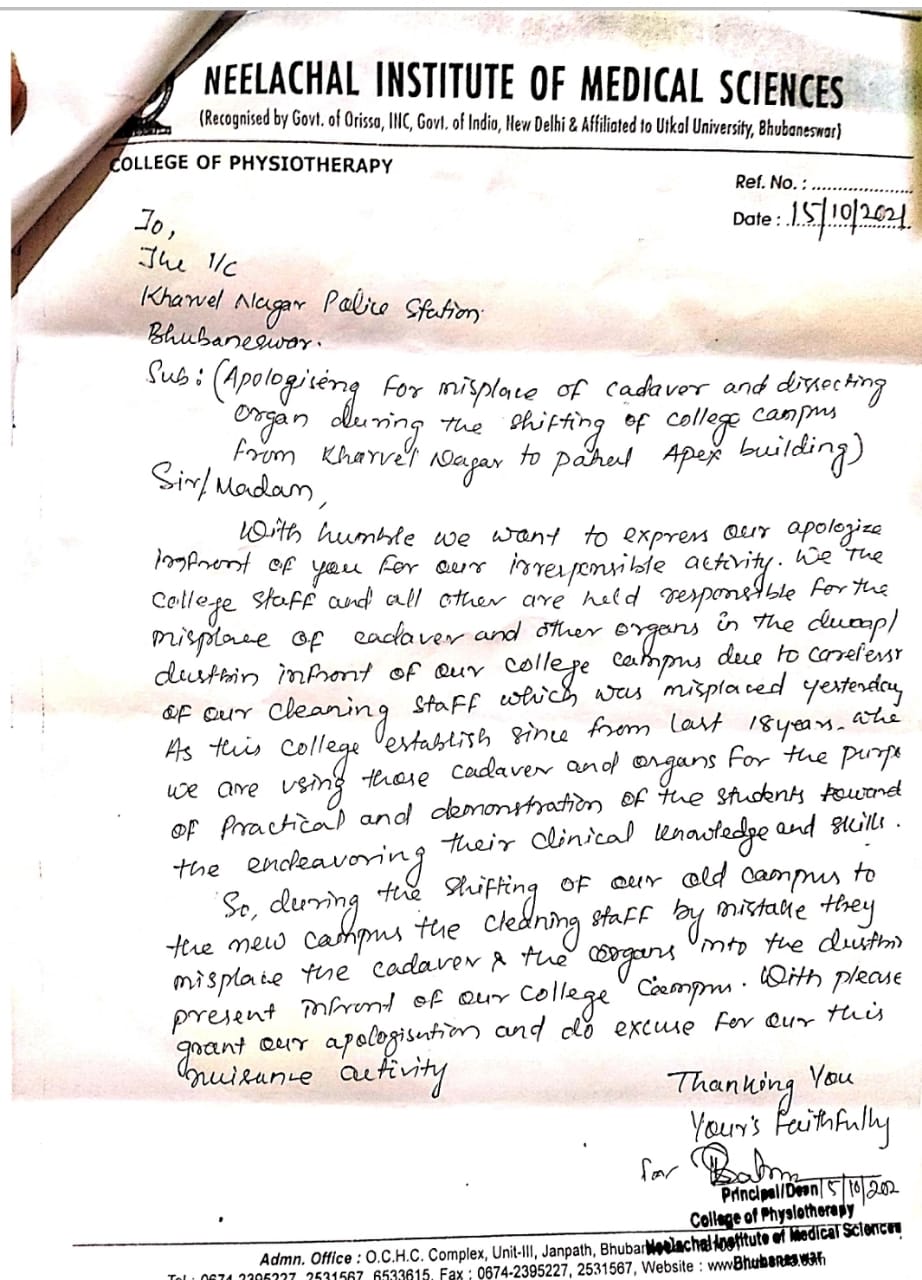 NEELACHAL INSTITUTE OF MEDICAL SCIENCES
(Recognised by Govt. of Orissa, INC, Govt. of India, New Delhi & Affiliated to Utkal University, Bhubaneswar)
COLLEGE OF PHYSIOTHERAPY
Ref. No. : ....................
Date : 15/10/2021
To,
The I/C
Kharvel Nagar Police Station
Bhubaneswar.
Sub: (Apologising For misplace of cadaver and dissecting
organ during the shifting of college campus
from Kharvel Nagar to pahal Apex building)
Sir/Madam,
With humble we want to express our apologize
infront of you for our irresponsible activity. We the
college staff and all other are held responsible for the
misplace of cadaver and other organs in the dump/
dustbin infront of our college campus due to
of our cleaning staff which was misplaced yesterday
As this college establish since from last 18 years.
we are using those cadaver and organs for the
of Practical and demonstration of the students toward
the endeavoring their clinical knowledge and skills.
So, during the shifting of our old campus to
the new campus the cleaning staff by mistake they
misplace the cadaver & the organs into the dustbin
present infront of our college campus. With please
grant our apologisution and do excuse for our this
nuisance activity
Thanking You
Your's Faithfully
for
Principal/Dean 15/10/202
College of Physiotherapy
Neelachal Institute of Medical Sciences
Bhubaneswar
Admn. Office : O.C.H.C. Complex, Unit-III, Janpath, Bhuban
Tel : 0674-2395227, 2531567, 6533615, Fax : 0674-2395227, 2531567, Website : www